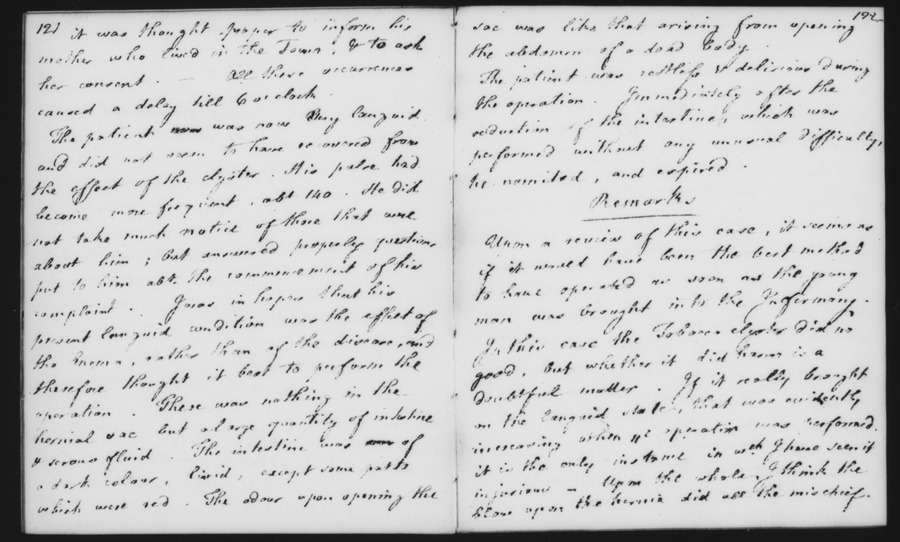 121 it was thought proper to inform his
mother who lived in the Town, & to ask
her consent. — All these occurrences
caused a delay till 6 o'clock.
The patient was now very languid
and did not seem to have recovered from
the effect of the clyster. His pulse had
become more frequent, abt 140. He did
not take much notice of those that were
about him; but answered properly questions
put to him abt. the commencement of his
complaint. I was in hopes that his
present languid condition was the effect of
the Enema, rather than of the disease, and
therefore thought it best to perform the
operation. There was nothing in the
hernial sac but a large quantity of intestine
& serous fluid. The intestine was of
a dark colour, livid, except some parts
which were red. The odour upon opening the
122
sac was like that arising from opening
the abdomen of a dead body.
The patient was restless & delirious during
the operation. Immediately after the
reduction of the intestine, which was
performed without any unusual difficulty,
he vomited, and expired.
Remarks
Upon a review of this case, it seems as
if it would have been the best method
to have operated as soon as the young
man was brought into the Infirmary.
In this case the Tobacco clyster did no
good, but whether it did harm is a
doubtful matter. If it really brought
on the languid state, that was evidently
increasing when ye operation was performed,
it is the only instance in wch I have seen it
injurious — Upon the whole, I think the
blow upon the hernia did all the mischief.